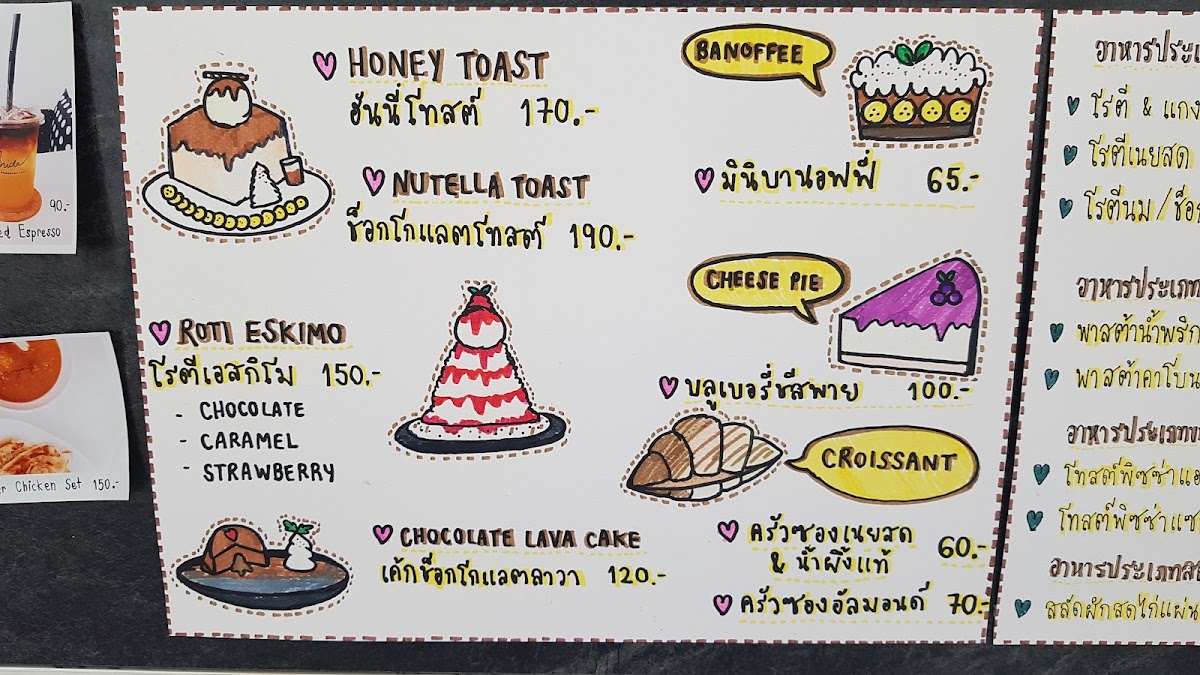 90.-
ed Espresso
r Chicken Set 150.-
HONEY TOAST
ฮันนี่โทสต์ 170.-
NUTELLA TOAST
ช็อกโกแลตโทสต์ 190.-
ROTI ESKIMO
โรตีเอสกิโม 150.-
- CHOCOLATE
- CARAMEL
- STRAWBERRY
CHOCOLATE LAVA CAKE
เค้กช็อกโกแลตลาวา 120.-
BANOFFEE
มินิบานอฟฟี่ 65.-
CHEESE PIE
บลูเบอรี่ชีสพาย 100.-
CROISSANT
ครัวซองเนยสด
& น้ำผึ้งแท้ 60.-
ครัวซองอัลมอนด์ 70.-
อาหารประเภ
โรตี & แกง
โรตีเนยสด
โรตีนม / ช็อก
อาหารประเภท
พาสต้าน้ำพริก
พาสต้าคาโบน
อาหารประเภทข
โทสต์พิซซ่าแอ
โทสต์พิซซ่าแซ
อาหารประเภทส
สลัดผักสดไก่แผ่น